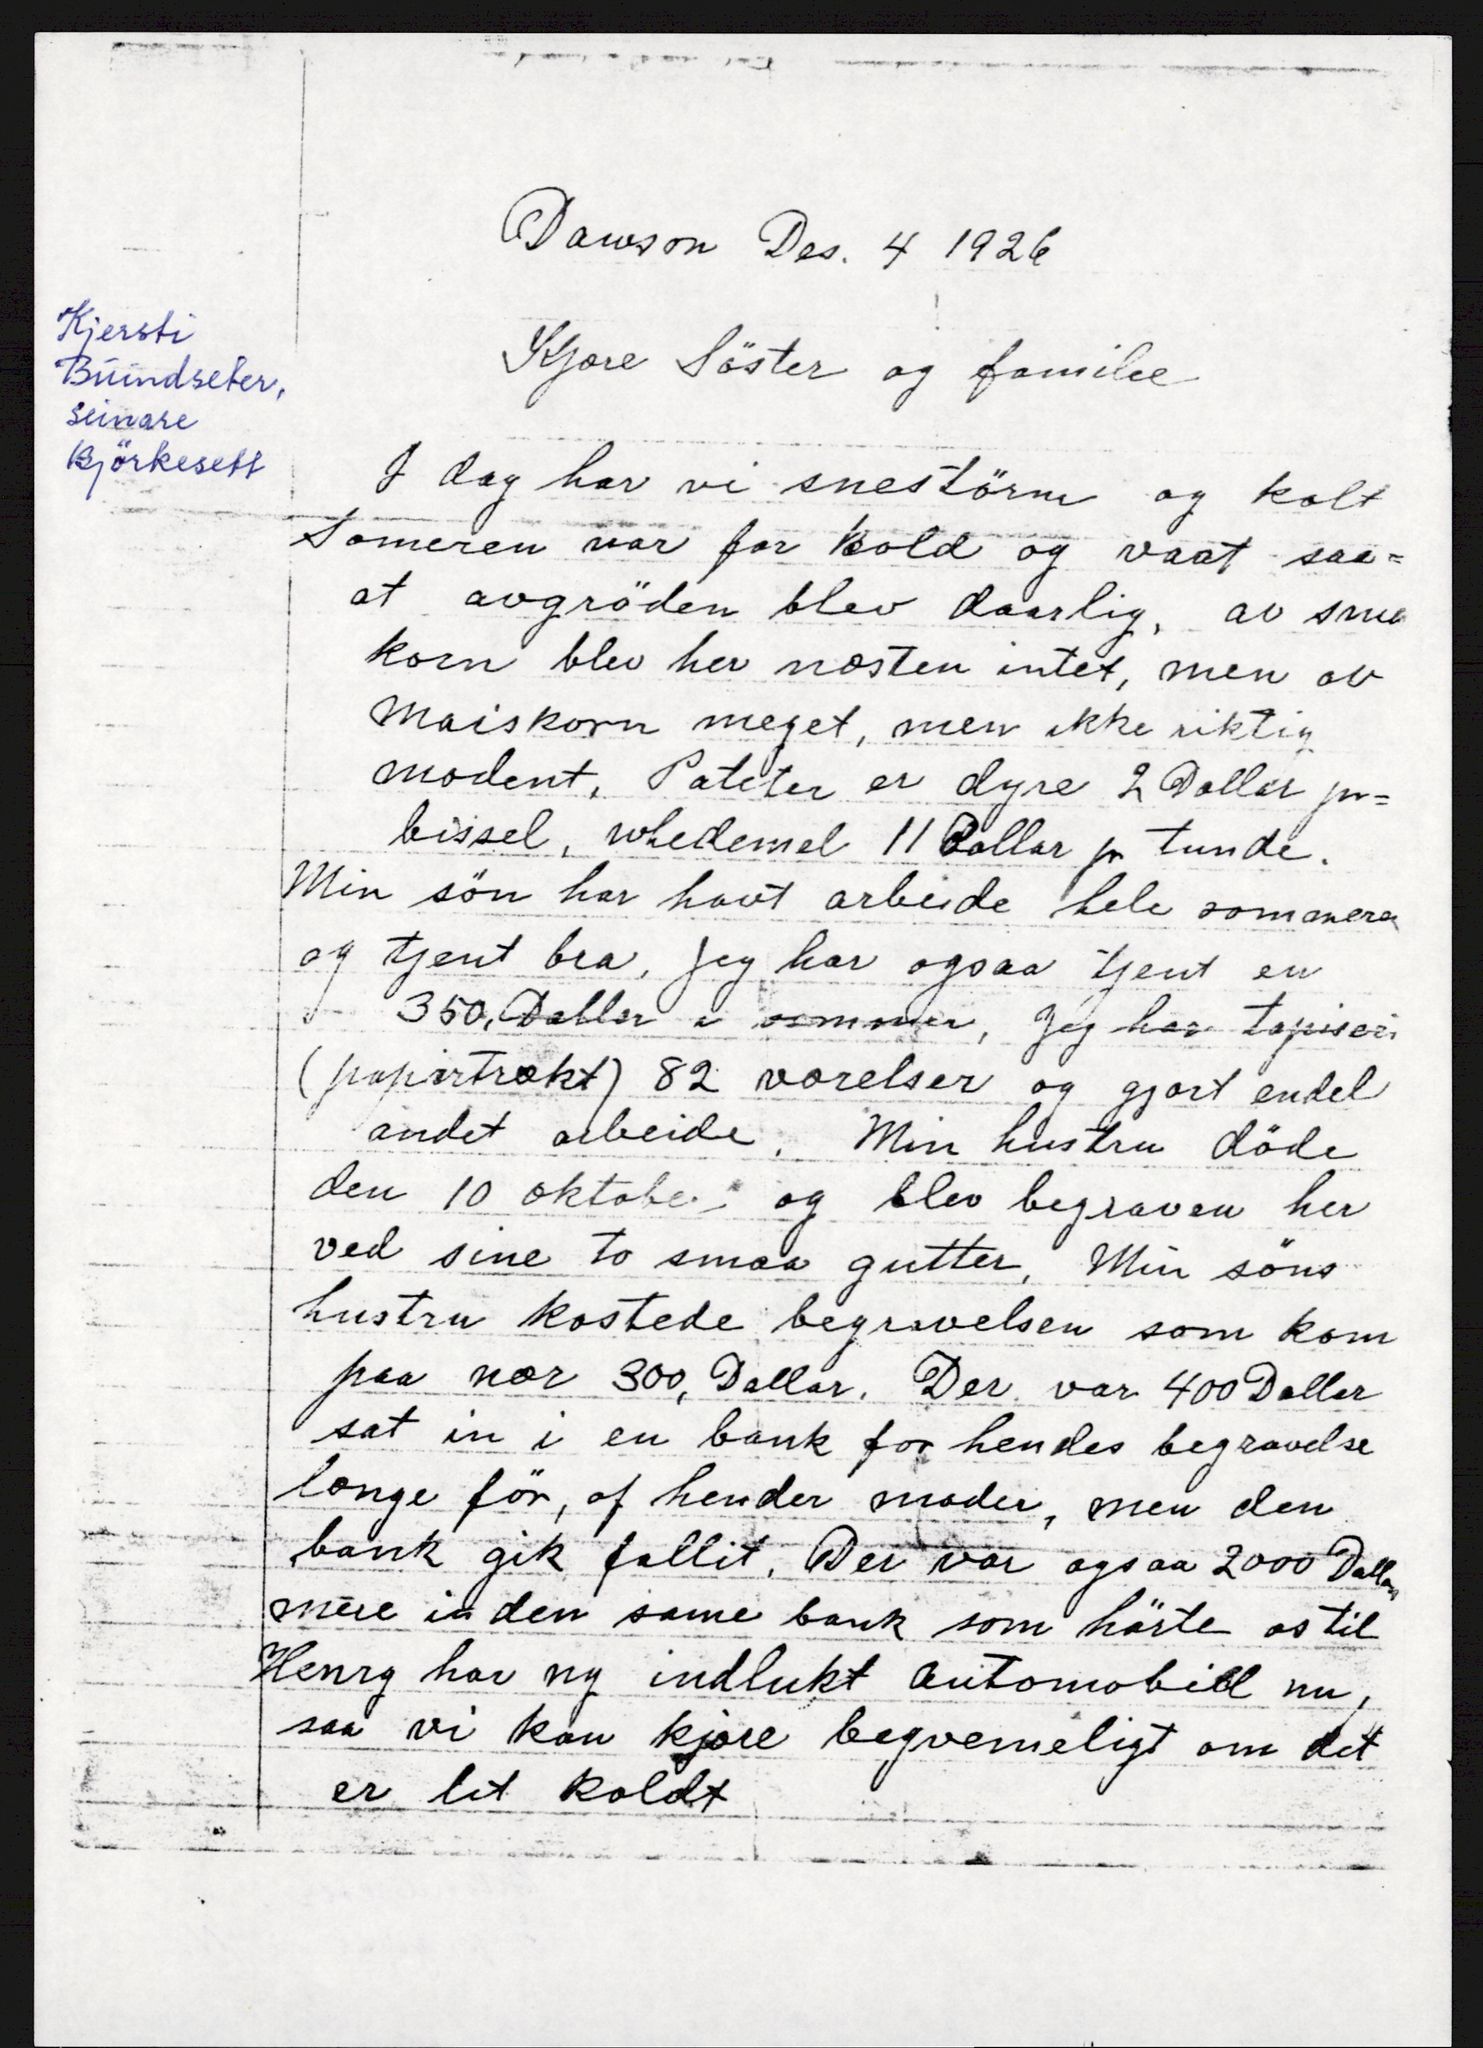 Dawson Des. 4 1926
Kjersti
Bündseter,
seinare
Björkesett
Kjære Söster og familee
I dag har vi snestörm og kalt
Someren var for kold og vaat saa=
at avgröden blev daarlig, av smaa
korn blev her næsten intet, men av
maiskorn meget, men ikke riktig
modent, Pateter er dyre 2 Dollar pr=
bissel, whedemel 11 Dollar pr tunde.
Min sön har havt arbeide hele sommeren
og tjent bra, Jeg har ogsaa tjent en
350, Dollar i sommer, Jeg har tapiseri
(papirtrækt) 82 værelser og gjort endel
andet arbeide. Min hustru döde
den 10 oktober og blev begraven her
ved sine to smaa gutter, Min söns
hustru kostede begravelsen som kom
paa nær 300, Dallar. Der var 400 Dollar
sat in i en bank for hendes begravelse
længe för, af hender moder, men den
bank gik fallit. Der var ogsaa 2000 Dallar
mere in den same bank som hörte os til
Henry har ny indlukt automobill nu,
saa vi kan kjøre beqvemeligt om det
er lit koldt